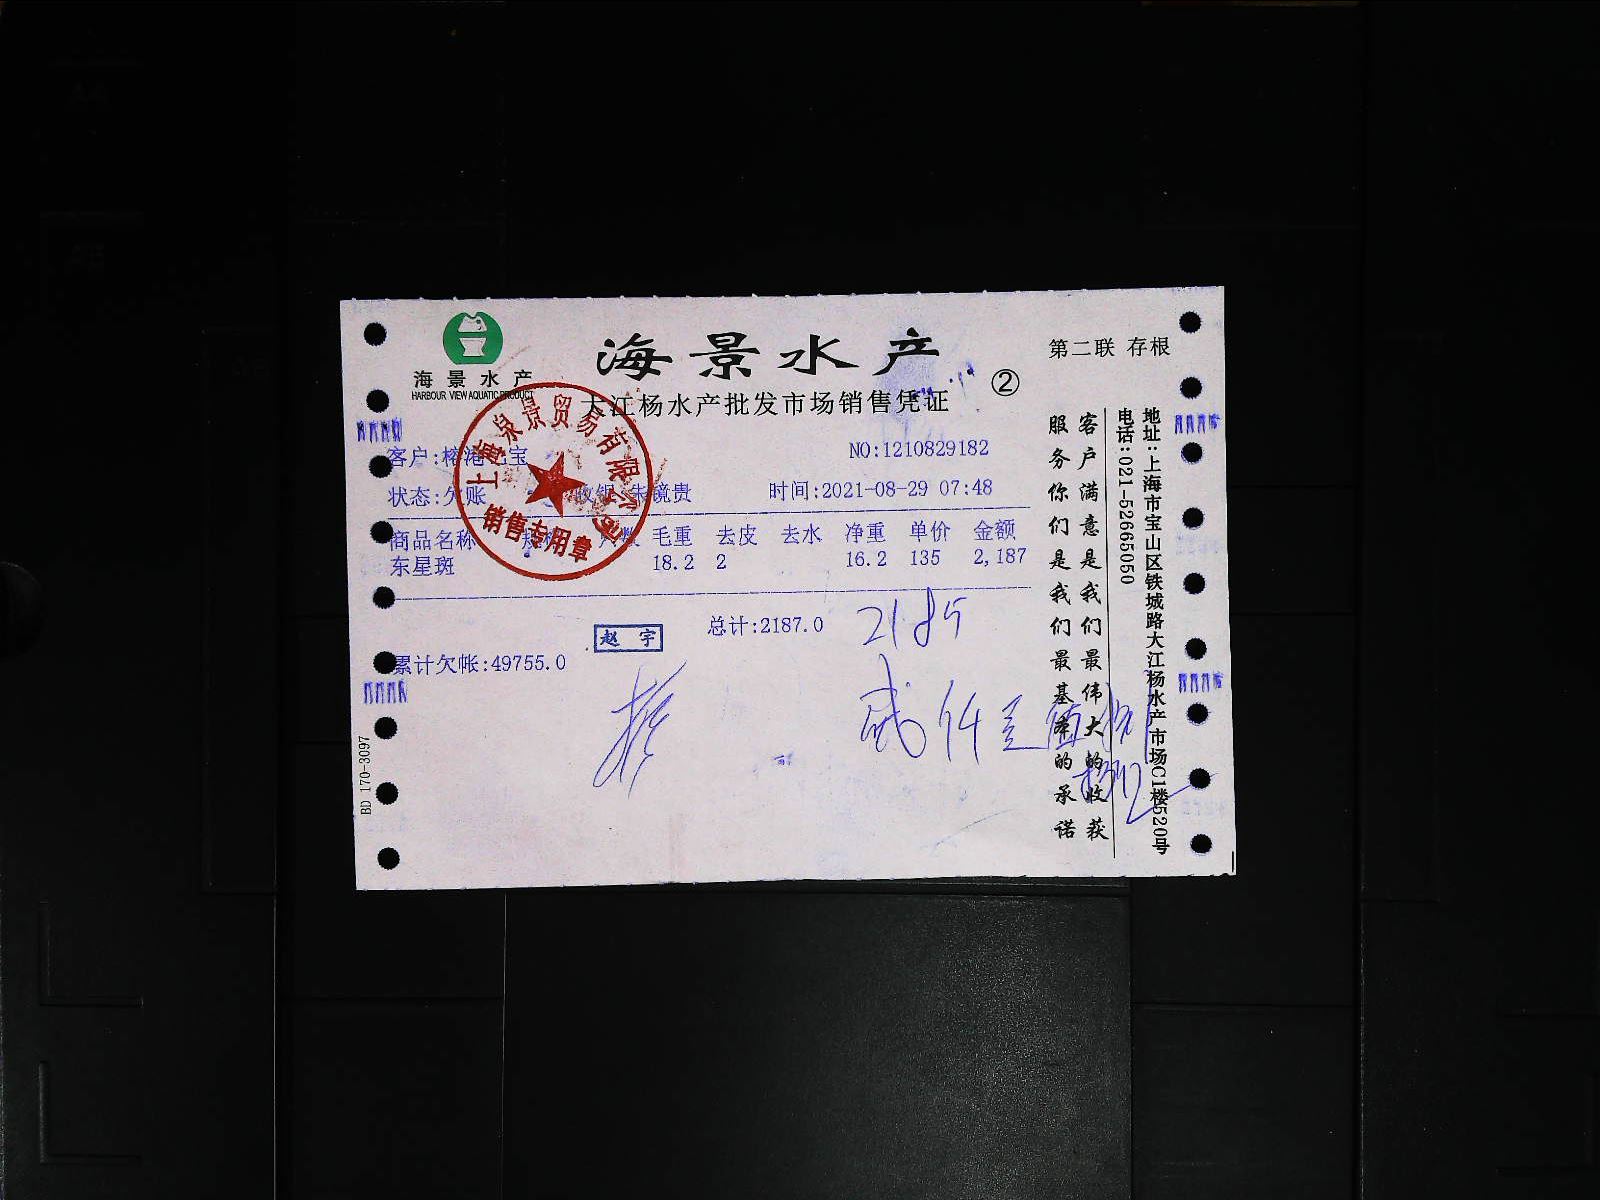 海景水产
HARBOUR VIEW AQUATIC PRODUCT
海景水产
大江杨水产批发市场销售凭证
②
第二联 存根
客户:榕港 宝
NO:1210829182
状态:欠账 收银 朱镜贵 时间:2021-08-29 07:48
商品名称 毛重 去皮 去水 净重 单价 金额
东星斑 18.2 2 16.2 135 2,187
总计:2187.0
2185
赵宇
累计欠帐:49755.0
上海泉景贸易有限公司
销售专用章
BD 170-3097
客户满意是我们最伟大的收获
服务你们是我们最基本的承诺
地址:上海市宝山区铁城路大江杨水产市场C1楼520号
电话:021-52665050